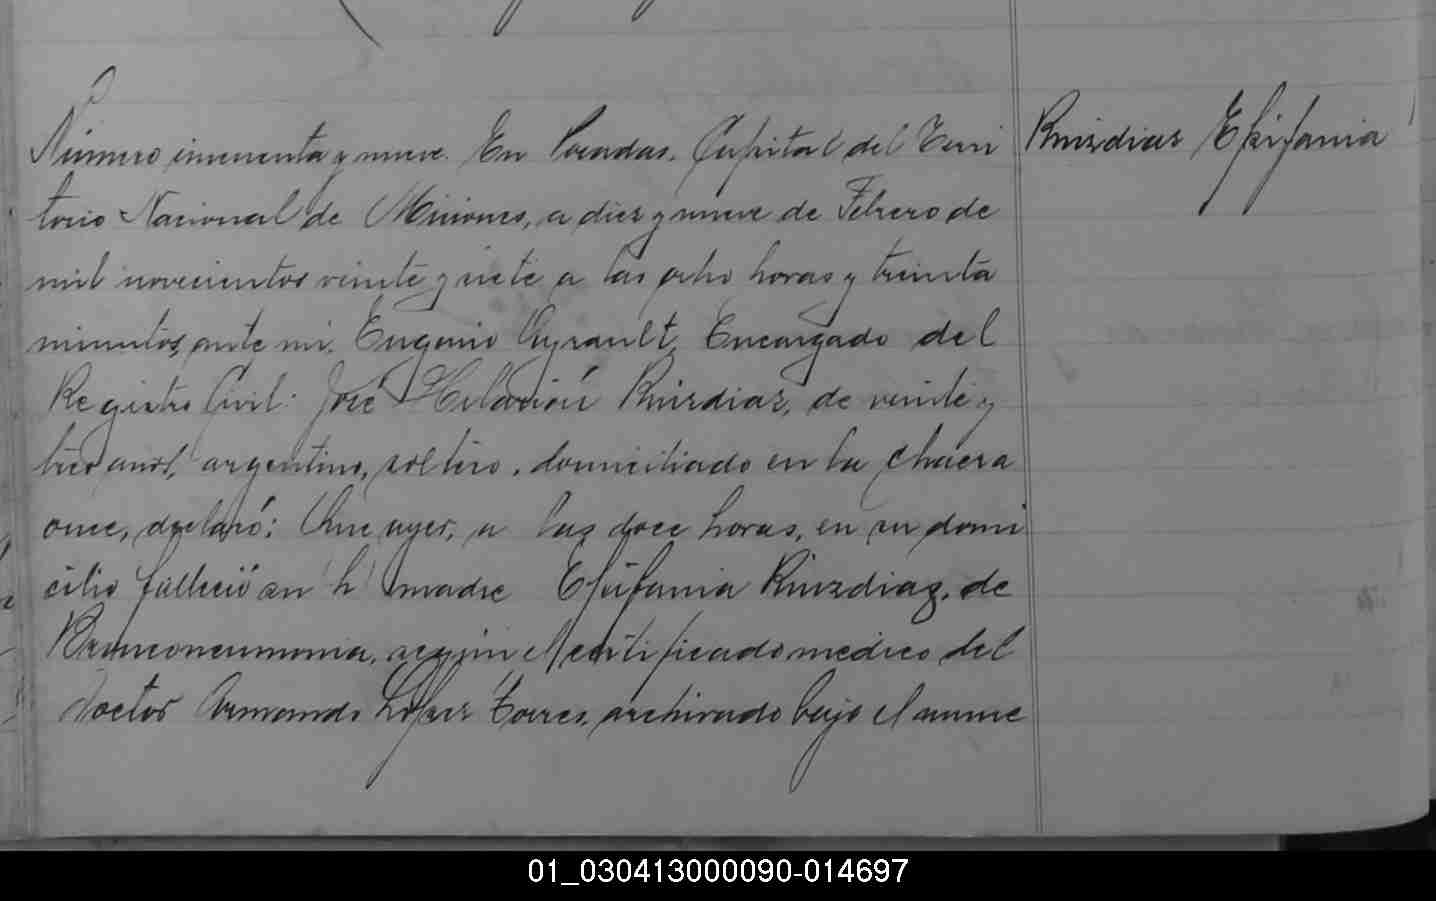 Número cincuenta y nueve. En Posadas, Capital del Terri
torio Nacional de Misiones, a diez y nueve de Febrero de
mil novecientos veinte y siete a las ocho horas y treinta
minutos, ante mi, Eugenio Ayrault, Encargado del
Registro Civil: José Hilarión Ruizdiaz, de veinte y
tres años, argentino, soltero, domiciliado en la chacra
once, declaró: Que ayer, a las doce horas, en su domi
cilio falleció su madre Epifania Ruizdiaz, de
Bronconeumonia, según el certificado medico del
doctor Armando López Torres, archivado bajo el nume
Ruizdiaz Epifania
01_030413000090-014697